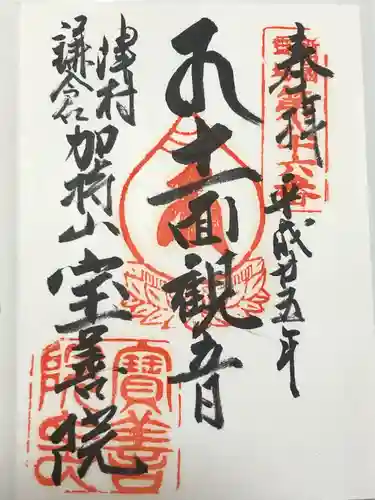 奉拝
平成廿五年
十一面観音
津村
鎌倉
加持山 宝善院
寶善